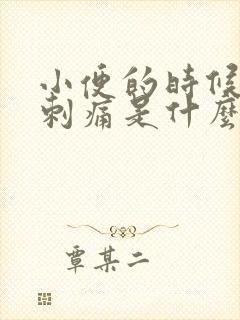 小便的時候
刺痛是什麼
覃某二